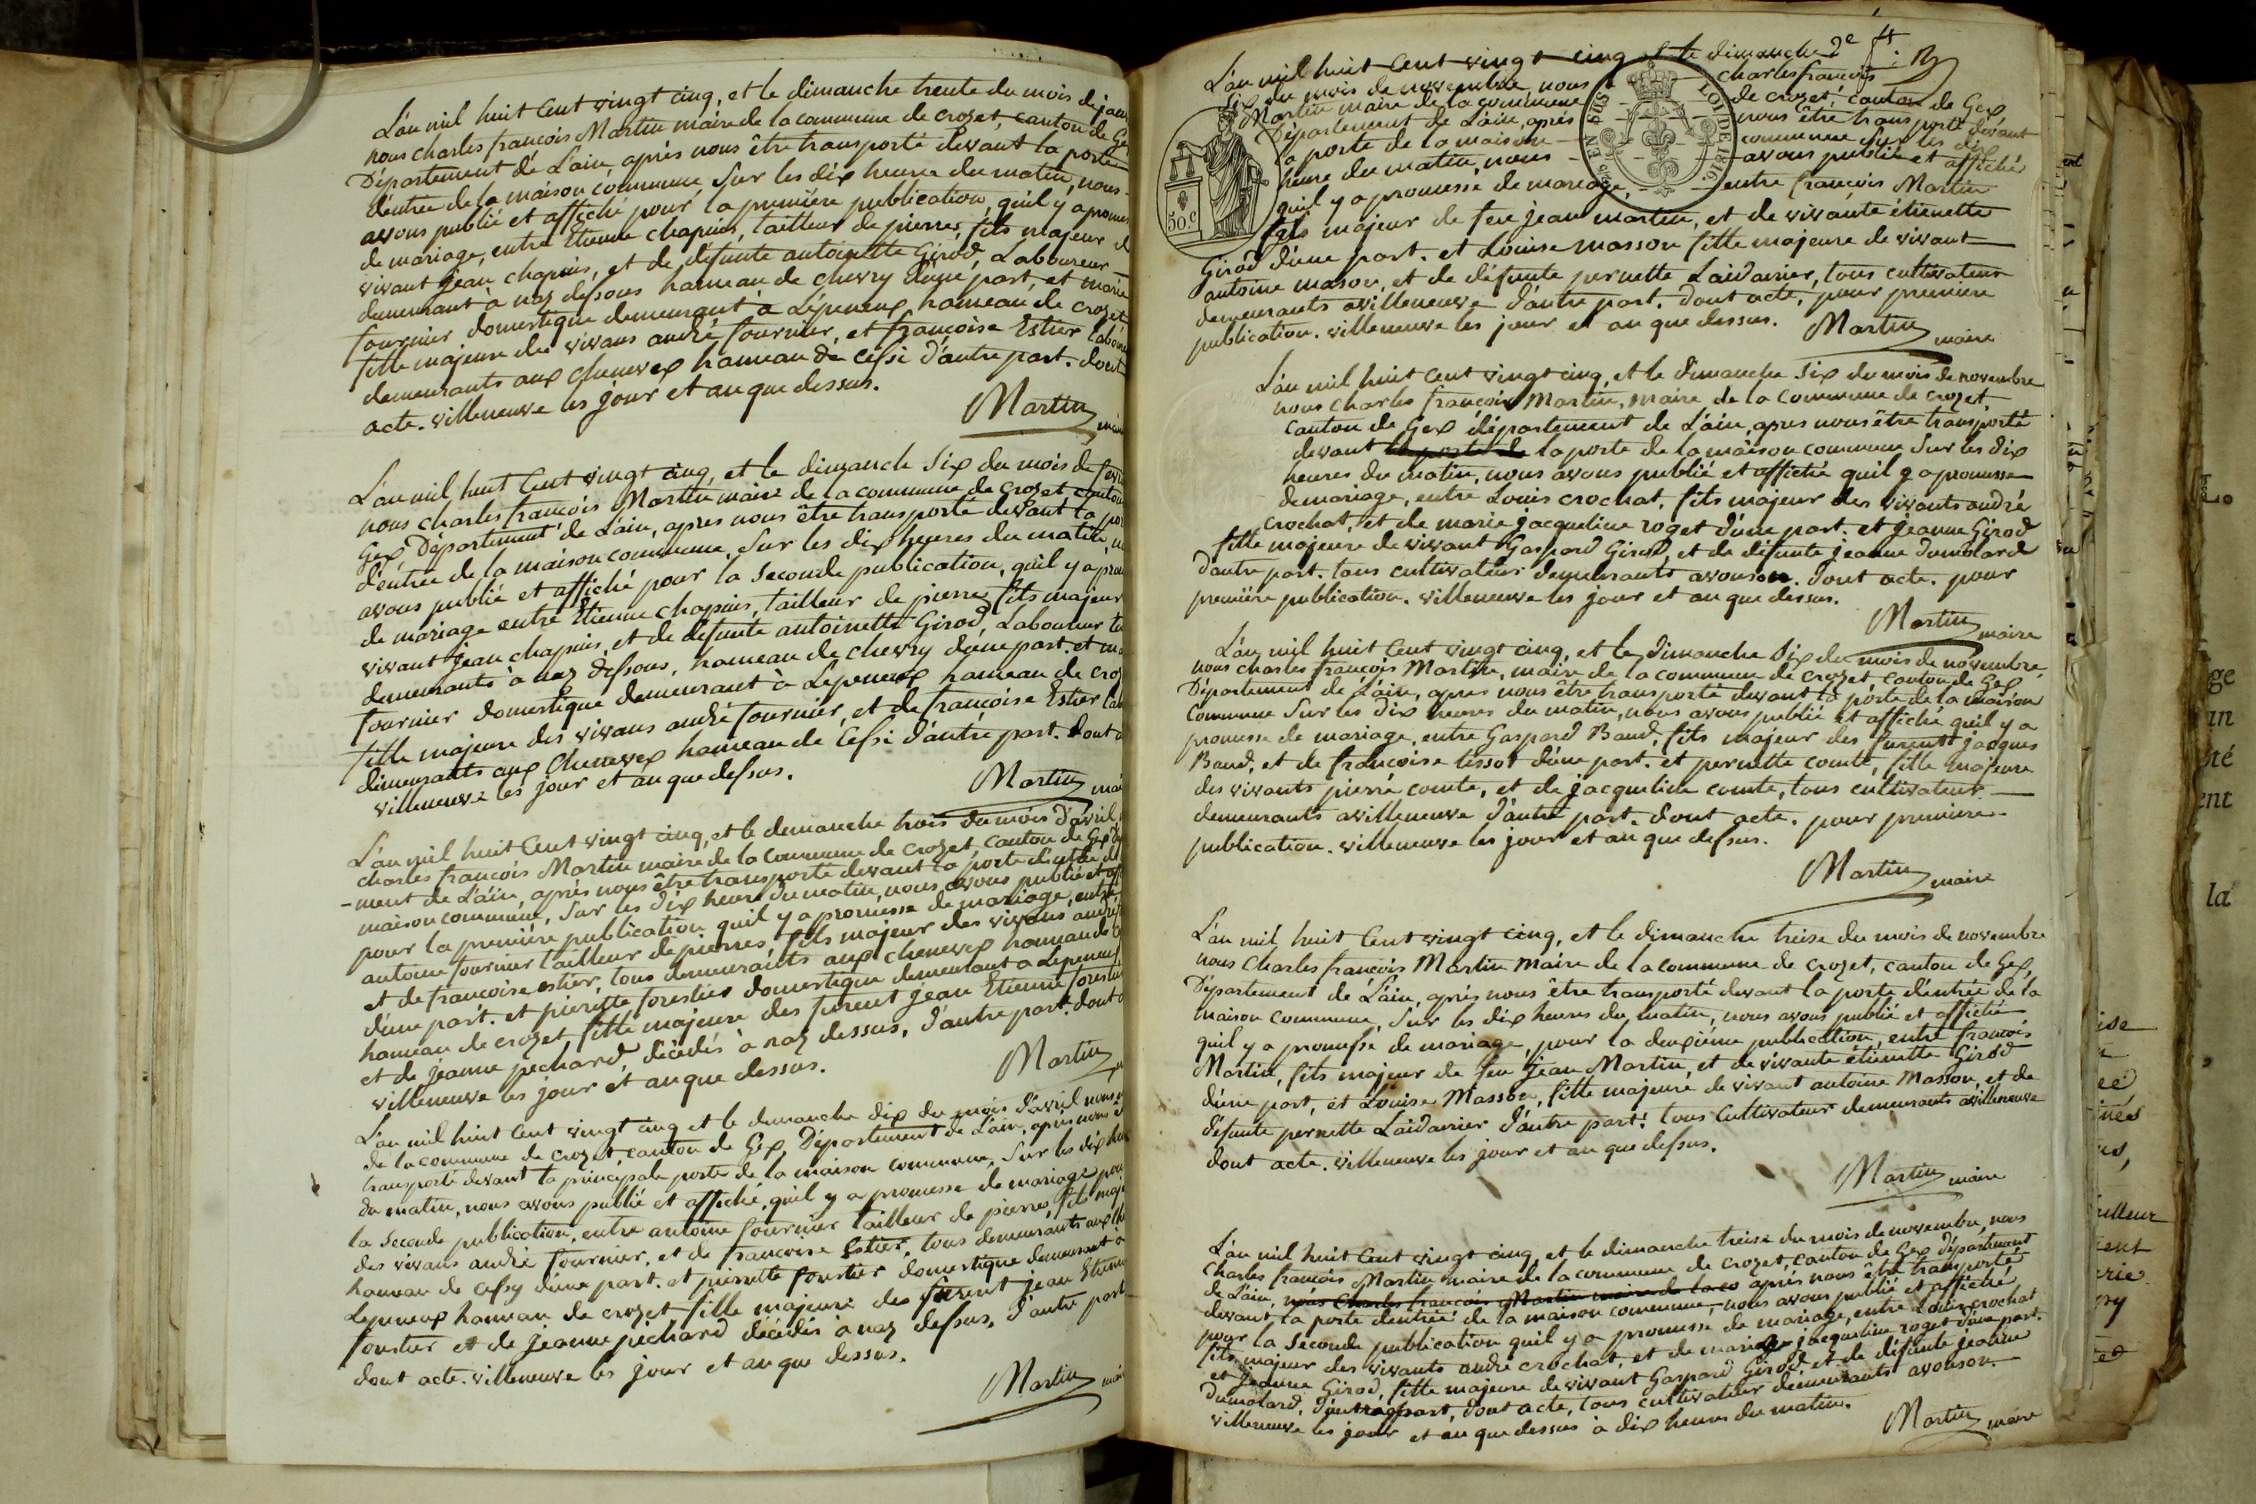 L'an mil huit Cent vingt cinq, et le dimanche trente du mois de janv
nous charles françois Martin maire de la commune de crozet, canton de Ge
Département de L'ain, après nous être transporté devant la porte
d'entrée de la maison commune, sur les dix heures du matin, nous
avons publié et affiché pour la première publication, quil y a promes
de mariage, entre Etienne chapuis, tailleur de pierres, fils majeur d
vivant jean chapuis, et de défunte antoinette Girod, Laboureur
demeurant à naz dessous hameau de chevry d'une part, et marie
fournier domestique demeurant à Lépeneux hameau de crozet
fille majeure des vivans andré fournier, et françoise Estier labour
demeurants aux chenevex hameau de Cessi d'autre part. dont
acte. villeneuve les jour et an que dessus.
Martin mai
L'an mil huit Cent vingt cinq, et le dimanche six du mois de fevr
nous charles françois Martin maire de la commune de crozet, canton
Gex Département de L'ain, après nous être transporté devant la por
d'entrée de la maison commune, sur les dix heures du matin, n
avons publié et affiché pour la seconde publication, quil y a prom
de mariage entre Etienne chapuis, tailleur de pierres, fils majeur
vivant jean chapuis, et de défunte antoinette Girod, Laboureur
demeurants à naz dessous, hameau de chevry d'une part. et ma
fournier domestique demeurant à Lépeneux hameau de croz
fille majeure des vivans andré fournier, et de françoise Estier lab
demeurants aux chenevex hameau de Cessi d'autre part. dont a
villeneuve les jour et an que dessus.
Martin mai
L'an mil huit Cent vingt cinq, et le demanche trois du mois d'avril
charles françois Martin maire de la commune de crozet, canton de Gex
-ment de L'ain, après nous être transporté devant la porte d'entrée de
maison commune, sur les dix heures du matin, nous avons publié et aff
pour la première publication quil y a promesse de mariage, entre
antoine fournier tailleur de pierres, fils majeur des vivans andré
et de françoise estier, tous demeuraints aux chenevex hameau de C
d'une part. et pierrette forestier domestique demeurant a Lépeneux
hameau de crozet, fille majeure des furent jean Etienne forestier
et de jeanne pechard décédés à naz dessus, d'autre part. dont a
villeneuve les jour et an que dessus.
Martin
L'an mil huit Cent vingt cinq et le demanche dix du mois d'avril nous
de la commune de crozet, canton de Gex, Département de L'ain, après nous ê
transporté devant la principale porte de la maison commune, sur les dix heu
du matin, nous avons publié et affiché, quil y a promesse de mariage pou
la seconde publication, entre antoine fournier tailleur de pierres, fils maje
des vivans andré fournier, et de francoise Estier, tous demeurants aux che
hameau de cessy d'une part. et pierrette forestier domestique demeurant à
Lépeneux hameau de crozet, fille majeure des furent jean Etienne
forestier et de jeanne pechard décédés à naz dessus, d'autre part
dont acte. villeneuve les jour et an que dessus.
Martin mai
L'an mil huit Cent vingt cinq et le dimanche 2e ft
six du mois de novembre, nous charles francois
Martin maire de la commune de crozet, canton de Gex
Département de L'ain, après nous être transporté devant
la porte de la maison commune sur les dix
heures du matin, nous avons publié et affiché
quil y a promesse de mariage, entre françois Martin
fils majeur de feu jean martin, et de vivante étienette
Girod d'une part. et Louise masson fille majeure de vivant
antoine mason, et de défunte pernette Laidarrier, tous cultivateur
demeurants avilleneuve d'autre part. dont acte, pour premiere
publication. villeneuve les jour et an que dessus.
50c
EN SUS
LOI DE 1816.
Martin maire
L'an mil huit Cent vingt cinq, et le dimanche six du mois de novembre
nous charles françois Martin, maire de la commune de crozet
canton de Gex département de L'ain, apres nous être transporté
devant la porte de la porte de la maison commune sur les dix
heures du matin, nous avons publié et affiché quil y a promesse
de mariage, entre Louis crochat, fils majeur des vivants andré
crochat, et de marie jacqueline roget d'une part. et jeanne Girod
fille majeure de vivant Gaspard Girod, et de défunte jeanne dumolard
d'autre part. tous cultivateur demeurants avouson. dont acte. pour
première publication. villeneuve les jour et an que dessus.
Martin maire
L'an mil huit Cent vingt cinq, et le dimanche six du mois de novembre
nous charles françois Martin, maire de la commune de crozet canton de Gex
Département de L'ain, apres nous être transporté devant la porte de la maison
commune sur les dix heures du matin, nous avons publié et affiché quil y a
promesse de mariage, entre Gaspard Baud, fils majeur des furent jacques
Baud, et de françoise tissot d'une part. et pernette comte, fille majeure
des vivants pierre comte, et de jacqueline comte, tous cultivateur
demeurants avilleneuve d'autre part. dont acte. pour première
publication. villeneuve les jour et an que dessus.
Martin maire
L'an mil huit Cent vingt cinq, et le dimanche treise du mois de novembre
nous charles françois Martin Maire de la commune de crozet, canton de Gex,
Département de L'ain, après nous être transporté devant la porte d'entrée de la
maison commune, sur les dix heures du matin, nous avons publié et affiché
quil y a promesse de mariage, pour la deuxième publication, entre françois
Martin, fils majeur de feu jean Martin, et de vivante étienette Girod
d'une part, et Louise Masson, fille majeure de vivant antoine Masson, et de
defunte pernette Laidarrier d'autre part. tous Cultivateur demeurants avilleneuve
dont acte. villeneuve les jour et an que dessus.
Martin maire
L'an mil huit Cent vingt cinq, et le dimanche treise du mois de novembre, nous
charles françois Martin maire de la commune de crozet, canton de Gex département
de L'ain, nous charles francois Martin maire de la co après nous être transporté
devant la porte d'entrée de la maison commune, nous avons publié et affiché
pour la seconde publication quil y a promesse de mariage, entre Louis crochat
fils majeur des vivants andré crochat, et de marie jacqueline roget d'une part.
et jeanne Girod, fille majeure de vivant Gaspard Girod et de défunte jeanne
Dumolard, d'autre part, dont acte, tous cultivateur demeurants avouson.
villeneuve les jour et an que dessus à dix heures du matin.
Martin maire